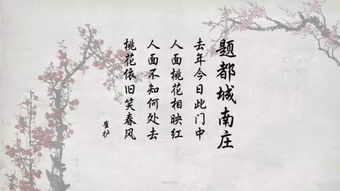 题都城南庄
去年今日此门中
人面桃花相映红
人面不知何处去
桃花依旧笑春风
崔护